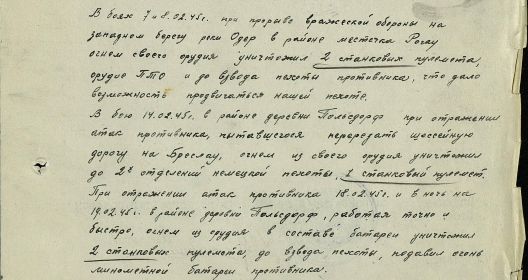 В боях 7 и 8.02.45г. при прорыве вражеской обороны на
западном берегу реки Одер в районе местечка Рогау
огнем своего орудия уничтожил 2 станковых пулемета,
орудие ПТО и до взвода пехоты противника, что дало
возможность продвигаться нашей пехоте.
В бою 14.02.45г. в районе деревни Польсдорф при отражении
атак противника, пытавшегося перерезать шоссейную
дорогу на Бреслау, огнем из своего орудия уничтожил
до 2х отделений немецкой пехоты, 1 станковый пулемет.
При отражении атак противника 18.02.45г. и в ночь на
19.02.45г. в районе деревни Польсдорф, работая точно и
быстро, огнем из орудия в составе батареи уничтожил
2 станковых пулемета, до взвода пехоты, подавил огонь
минометной батареи противника.